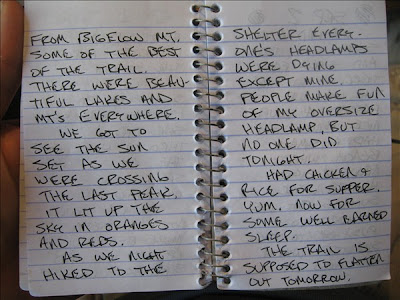 FROM BIGELOW MT.
SOME OF THE BEST
OF THE TRAIL.
THERE WERE BEAU-
TIFUL LAKES AND
MT'S EVERYWHERE.
WE GOT TO
SEE THE SUN
SET AS WE
WERE CROSSING
THE LAST PEAK.
IT LIT UP THE
SKY IN ORANGES
AND REDS.
AS WE NIGHT
HIKED TO THE
SHELTER EVERY-
ONE'S HEADLAMPS
WERE DYING
EXCEPT MINE.
PEOPLE MAKE FUN
OF MY OVERSIZE
HEADLAMP, BUT
NO ONE DID
TONIGHT.
HAD CHICKEN &
RICE FOR SUPPER.
YUM. NOW FOR
SOME WELL EARNED
SLEEP.
THE TRAIL IS
SUPPOSED TO FLATTEN
OUT TOMORROW.